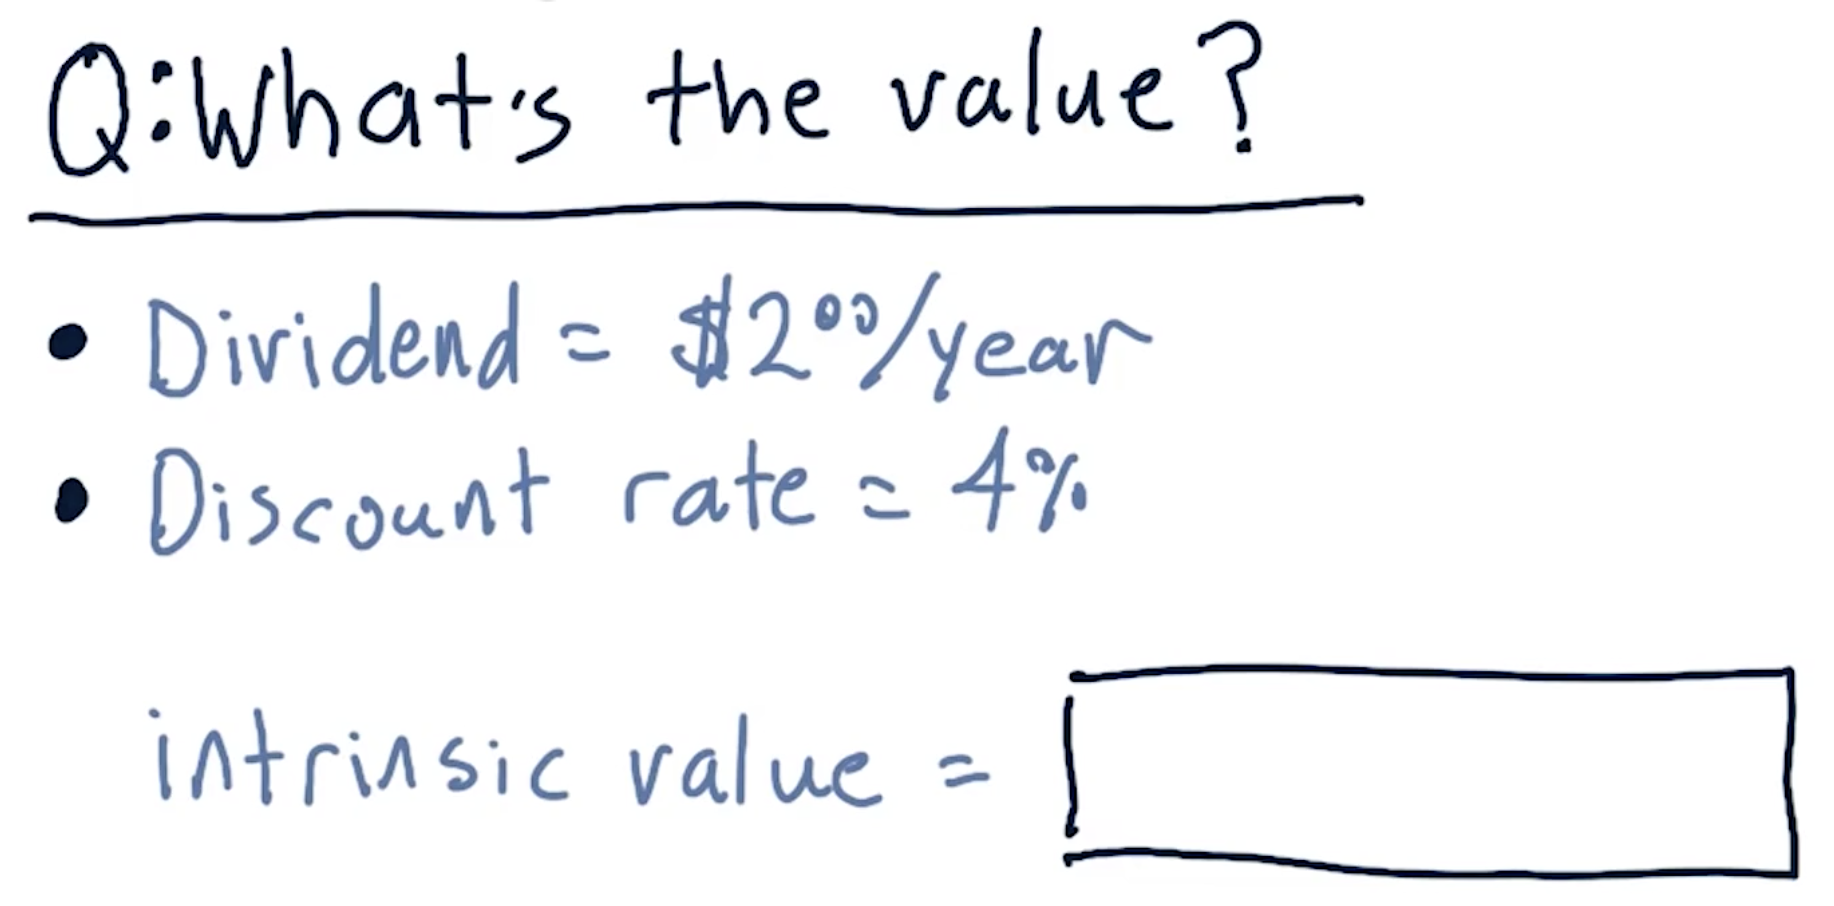 Q: What's the value?
• Dividend = $2⁰⁰/year
• Discount rate = 4%
intrinsic value =